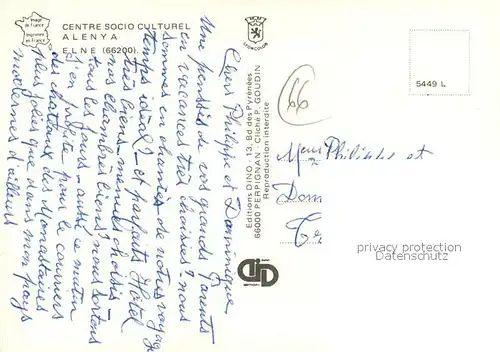 Image de France
Imprimée en France
CENTRE SOCIO CULTUREL
ALENYA
ELNE (66200).
LYONCOLOR
5449 L
Chers Philippe et Dominique
Une pensée de vos grands Parents
en vacances très choisies? nous
sommes enchantés de notre voyage
temps idéal - et parfait Hôtel
très bien menus choisis -
nos chambres biens? nous sortons
tous les jours - aussi ce matin
j'en profite pour le courrier
des chateaux des Monastères
plus jolies que dans mon pays
modernes d'ailleurs
Editions DINO - 13, Bd des Pyrénées
66000 PERPIGNAN - Cliché P. GOUDIN
Reproduction interdite
DINO
66
Philippe et
Dom
privacy protection
Datenschutz